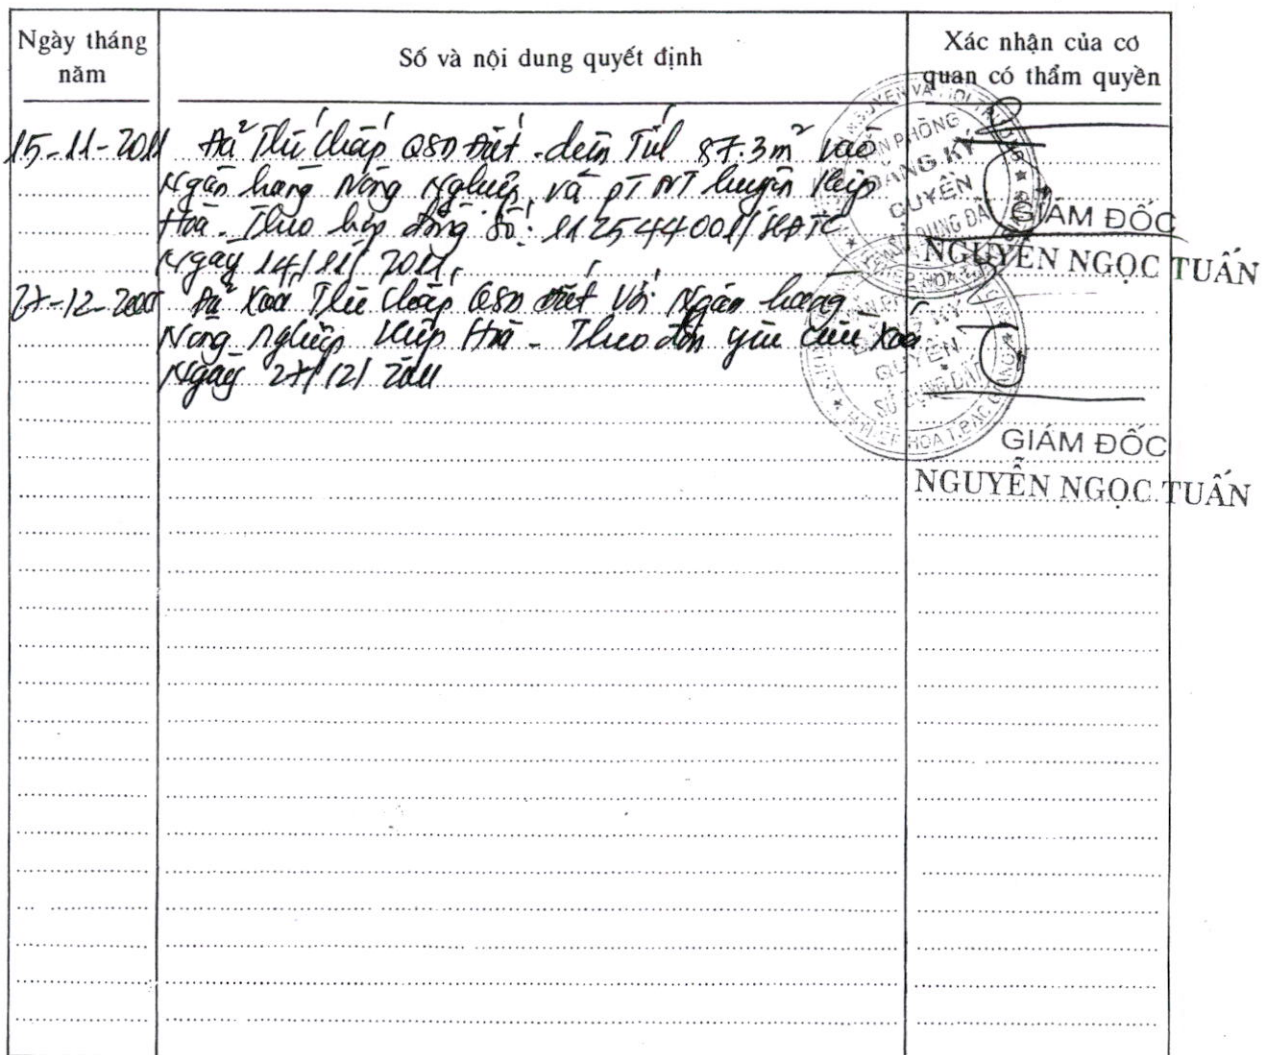 Ngày tháng năm
Số và nội dung quyết định
Xác nhận của cơ quan có thẩm quyền
15-11-2011 Đã Thế chấp QSD Đất. diện Tích 87.3m² vào
Ngân hàng Nông Nghiệp và PT NT huyện Hiệp
Hoà. Theo hợp đồng số: 112544001/HĐTC
Ngày 14/11/2011.
VĂN PHÒNG
ĐĂNG KÝ
QUYỀN
SỬ DỤNG ĐẤT
GIÁM ĐỐC
NGUYỄN NGỌC TUẤN
27-12- Đã Xoá Thế chấp QSD Đất Với Ngân hàng
Nông Nghiệp Hiệp Hoà - Theo đơn yêu cầu Xoá
Ngày 27/12/2011
QUYỀN
SỬ DỤNG ĐẤT
GIÁM ĐỐC
NGUYỄN NGỌC TUẤN